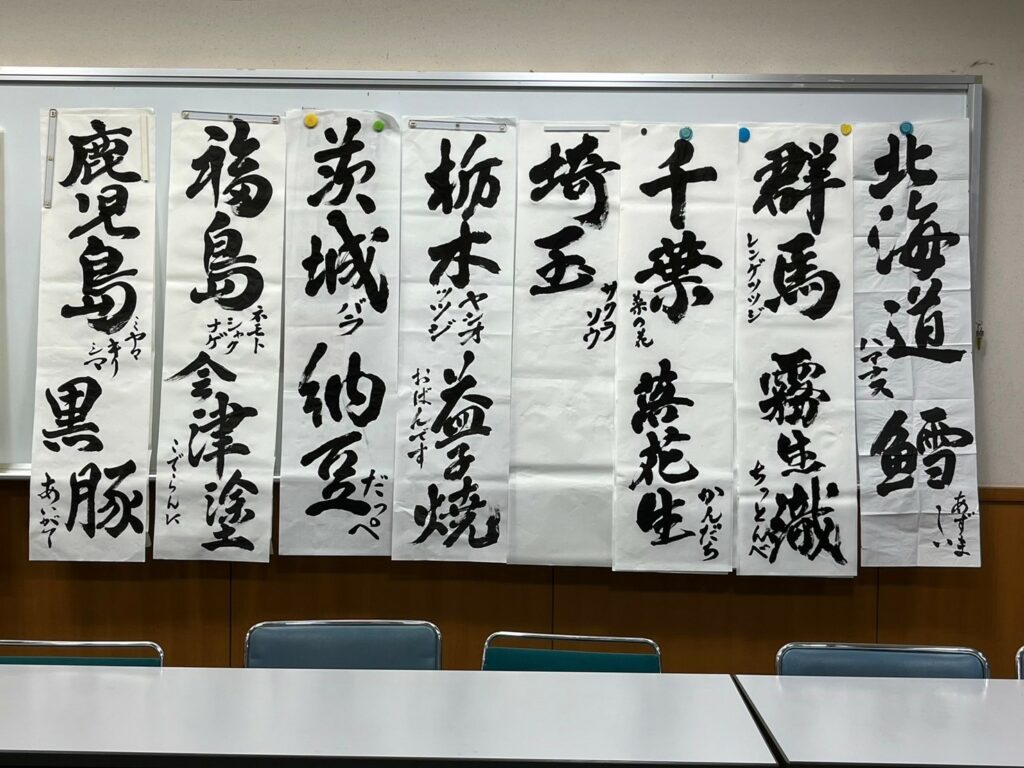 北海道
ハマナス
鱈
あずま
しい
群馬
レンゲツツジ
霧生織
ちっとんべ
千葉
菜の花
落花生
かんだち
埼玉
サクラ
ソウ
栃木
ヤシオ
ツツジ
益子焼
おばんです
茨城
バラ
納豆
だっぺ
福島
ネモト
シャク
ナゲ
会津塗
こでらんに
鹿児島
ミヤマ
キリ
シマ
黒豚